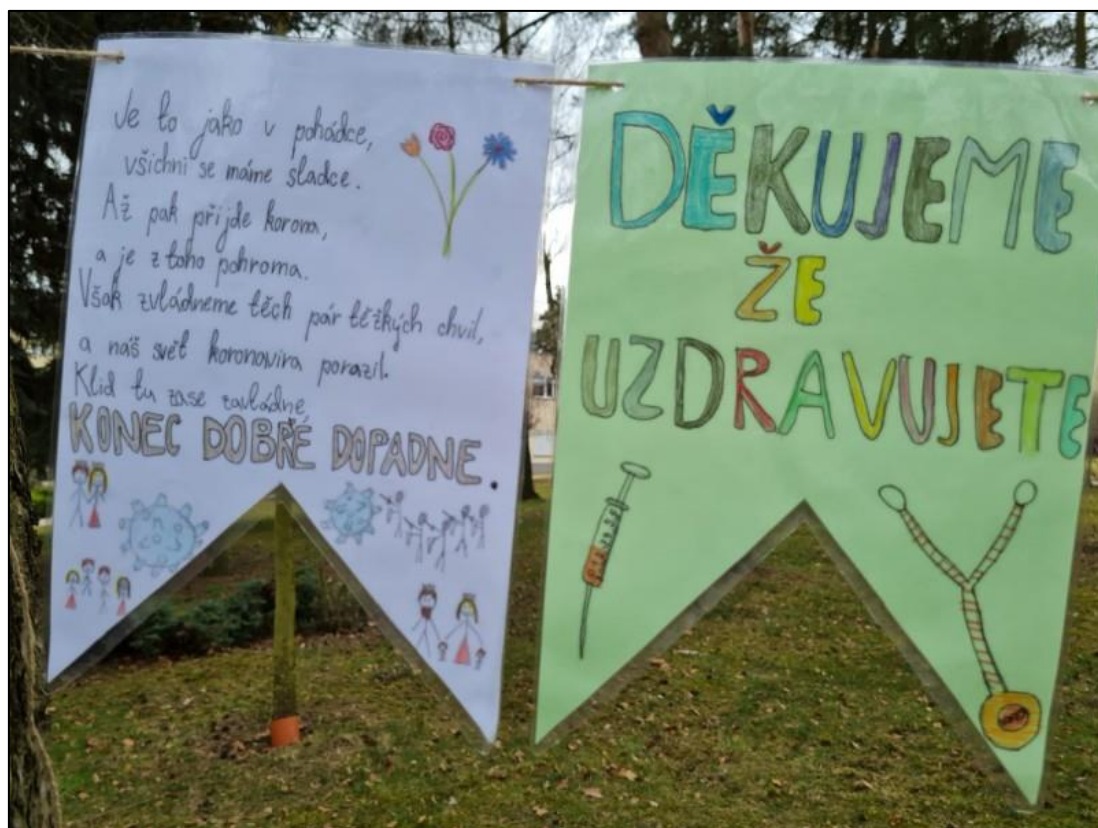 Je to jako v pohádce,
všichni se máme sladce.
Až pak přijde korona,
a je z toho pohroma.
Však zvládneme těch pár těžkých chvil,
a náš svět koronavira porazil.
Klid tu zase zavládne,
KONEC DOBŘE DOPADNE.
DĚKUJEME
ŽE
UZDRAVUJETE